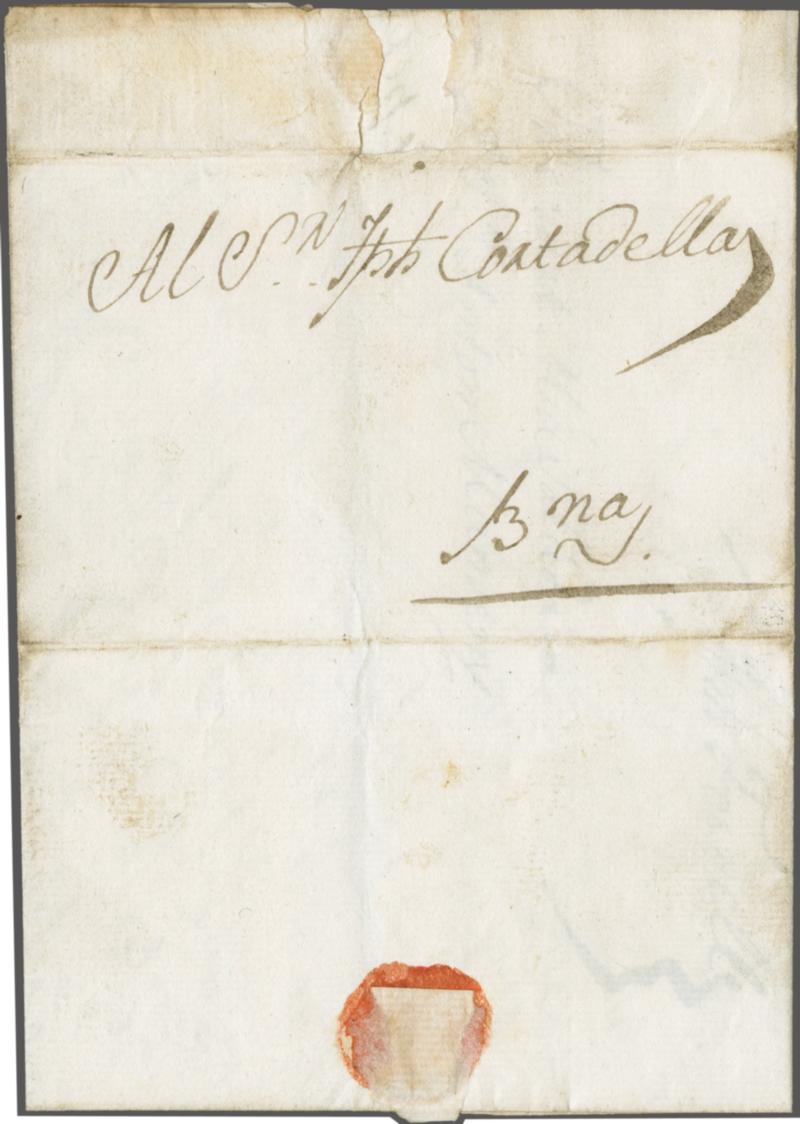 Al S.n Jph Cortadella
Bna.